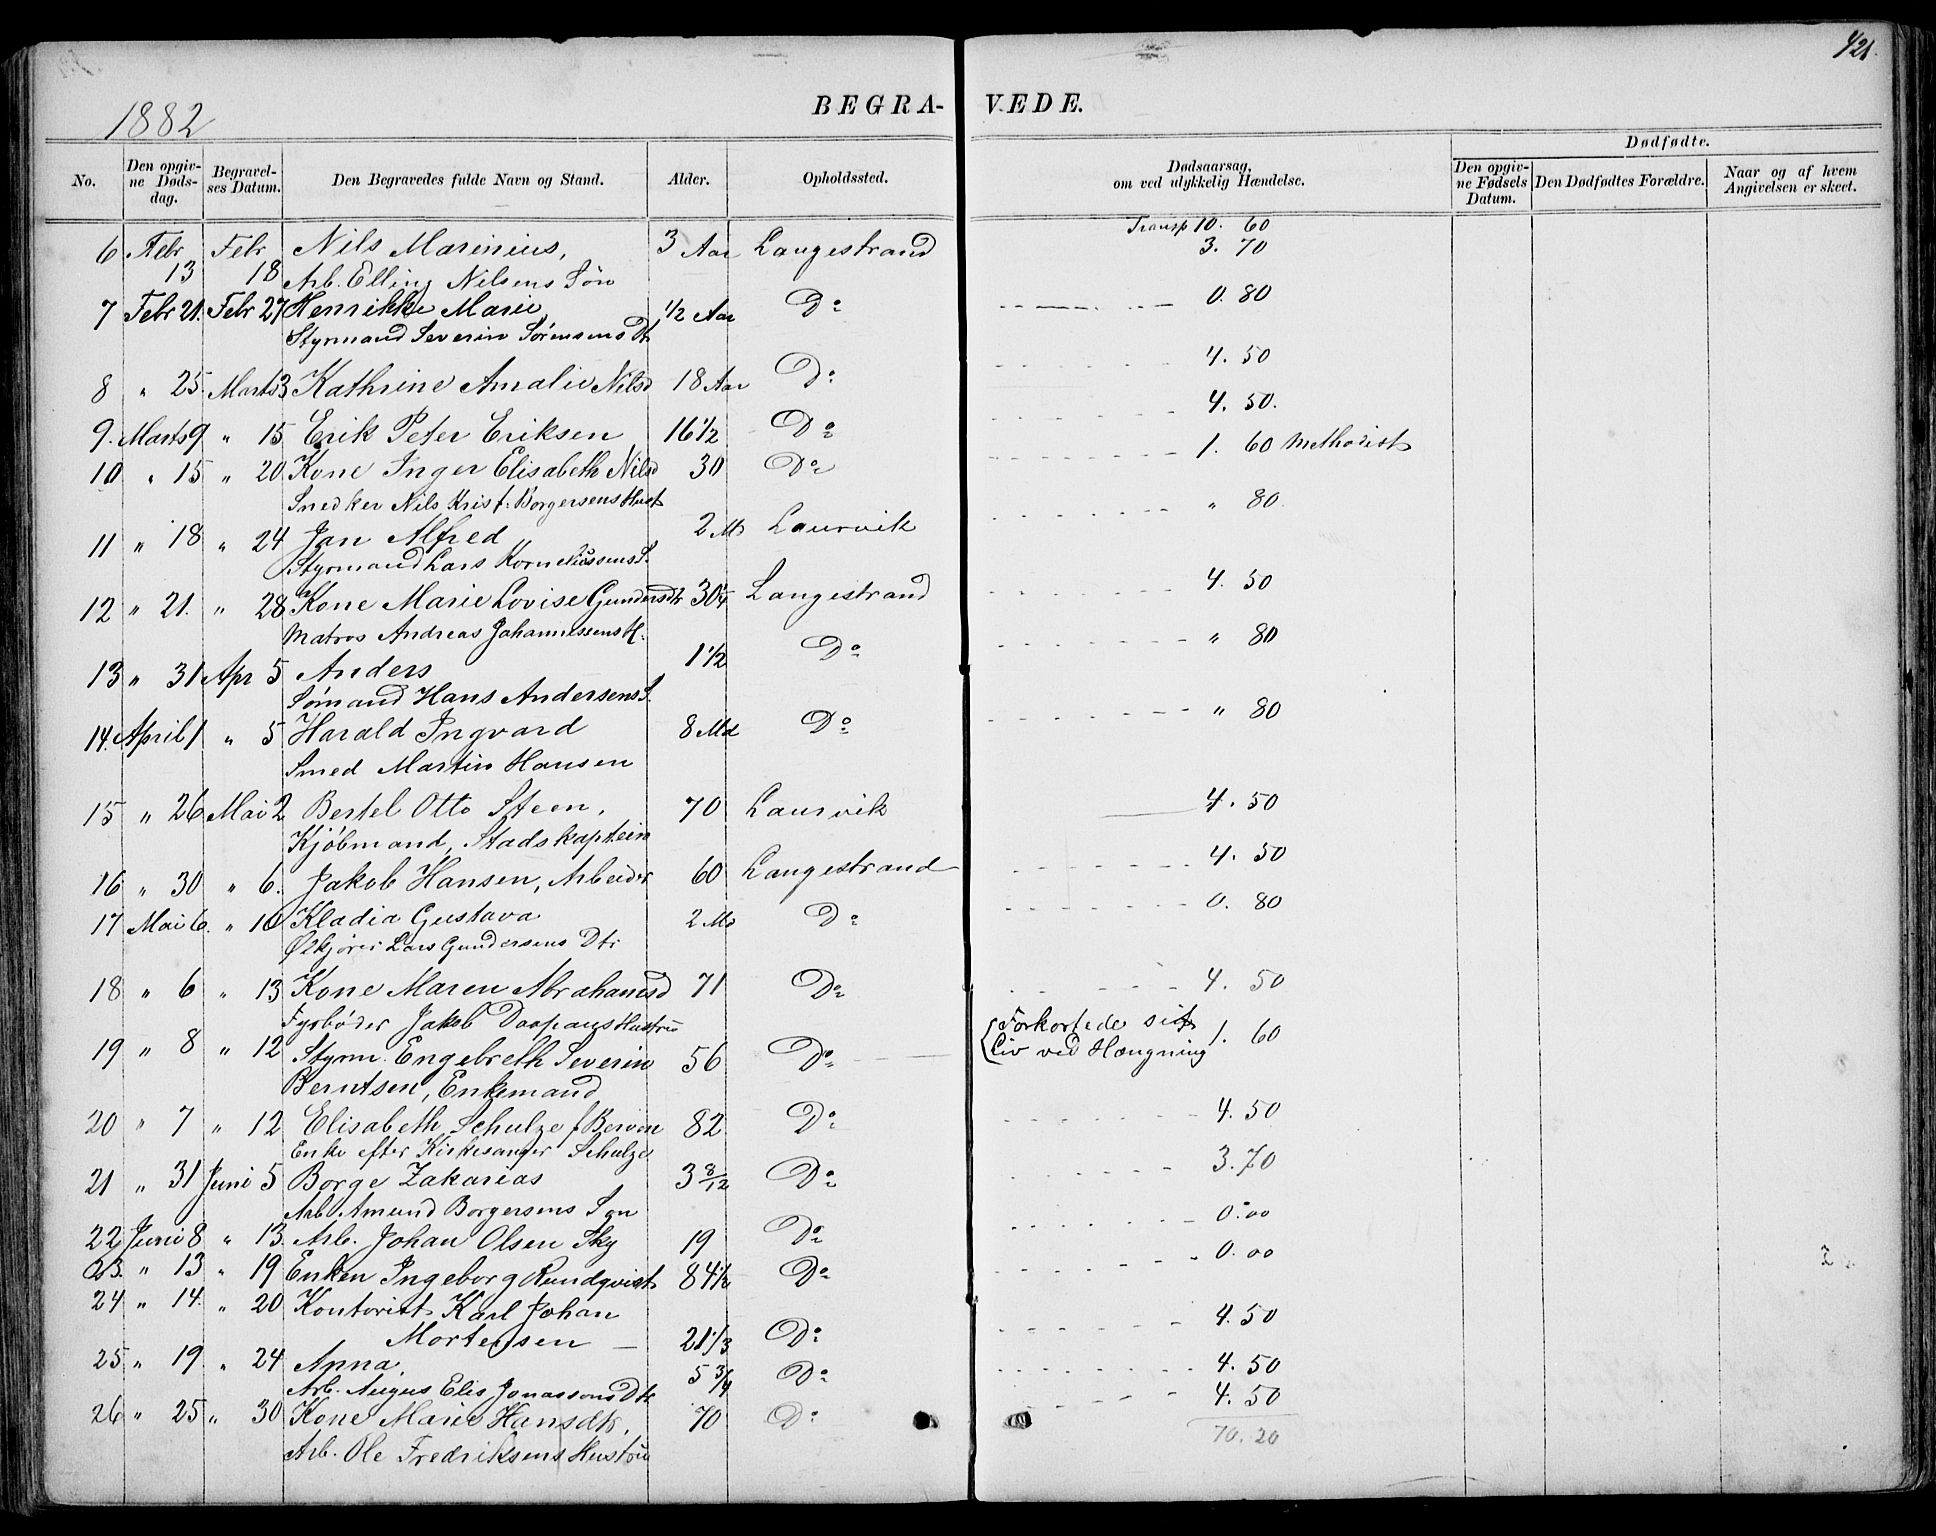 421.
1882
BEGRA-
VEDE.
No.
Den opgiv-
ne Døds-
dag.
Begravel-
ses Datum.
Den Begravedes fulde Navn og Stand.
Alder.
Opholdssted.
Dødsaarsag,
om ved ulykkelig Hændelse.
Dødfødte.
Den opgiv-
ne Fødsels
Datum.
Den Dødfødtes Forældre.
Naar og af hvem
Angivelsen er skeet.
Transp 10. 60
6 Febr Febr Nils Marinius, 3 Aar Langestrand 3. 70
13 18 Arb. Elling Nilsens Søn
7 Febr 21. Febr 27 Henrikke Marie 1/2 Aar Do 0. 80
Styrmand Severin Sørensens Dtr
8 " 25. Marts 3 Kathrine Amalie Nilsd 18 Aar Do 4. 50
9. Marts 9 " 15 Erik Peter Eriksen 16 1/2 Do 4. 50.
10 " 15 " 20 Kone Inger Elisabeth Nilsd 30 Do 1. 60 Methodist
Snedker Nils Krist. Borgersens Hust
11 " 18 " 24 Jan Alfred 2 Md Laurvik " 80
Styrmand Lars Korneliussens S.
12 " 21. " 28 Kone Marie Lovise Gundersdtr 30 Langestrand 4. 50
Matros Andreas Johannessens H.
13 " 31 Apr 5 Anders 1 1/2 Do " 80
Sømand Hans Andersens S.
14. April 1 " 5 Harald Ingvard 8 Md Do " 80
Smed Martin Hansen
15 " 26 Mai 2 Bertel Otto Steen, 70 Laurvik 4. 50
Kjöbmand, Stadskaptein
16 " 30 " 6. Jakob Hansen, Arbeider 60 Langestrand 4. 50
17 Mai 6. " 10 Kladia Gustava 2 Md Do 0. 80
Ølkjører Lars Gundersens Dtr
18 " 6 " 13 Kone Maren Abrahamsd 71 Do 4. 50
Fyrbøder Jakob Hustru
19 " 8 " 12 Styrm. Engebreth Severin 56 Do Forkortede sit 1. 60
Berntsen, Enkemand Liv ved Hængning
20 " 7 " 12 Elisabeth Schulze f. 82 Do 4. 50
Enke efter Kirkesanger Schulze
21 " 31 Juni 5 Borge Zakarias 3 8/12 Do 3. 70
Arb Amund Borgersens Søn
22 Juni 8 " 13. Arb. Johan Olsen Sky 19 Do 0. 00
23. " 13 " 19 Enken Ingeborg Rundqvist 84 1/2 Do 0. 00
24 " 14. " 20 Kontorist Karl Johan
Mortensen 21 1/3 Do 4. 50
25 " 19 " 24 Anna, 5 3/4 Do 4. 50
Arb. Elis Jonassons Dtr
26 " 25 " 30 Kone Marie Hansdtr, 70 Do 4. 50
Arb. Ole Fredriksens Hustru
70. 20